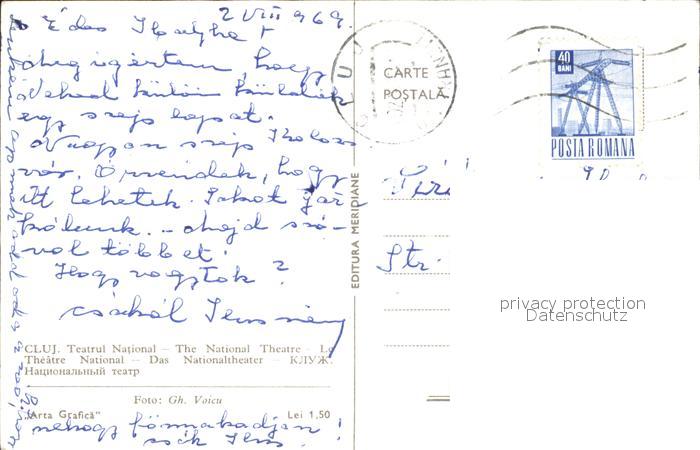 2 VIII 969.
Édes Ibolyka!
Megigértem, hogy
Neked külön küldök
egy szép lapot.
Nagyon szép Kolozs
vár. Örvendek, hogy
itt lehetek. Sokat jár
kálunk. - Majd szó-
val többet.
Hogy vagytok?
csókol
CLUJ. Teatrul Național — The National Theatre — Le
Théâtre National — Das Nationaltheater — КЛУЖ.
Национальный театр
Foto: Gh. Voicu
"Arta Grafică" Lei 1,50
nehogy fönnakadjon!
csók
EDITURA MERIDIANE
CARTE
POȘTALĂ
40
BANI
POSTA ROMANA
Str.
privacy protection
Datenschutz